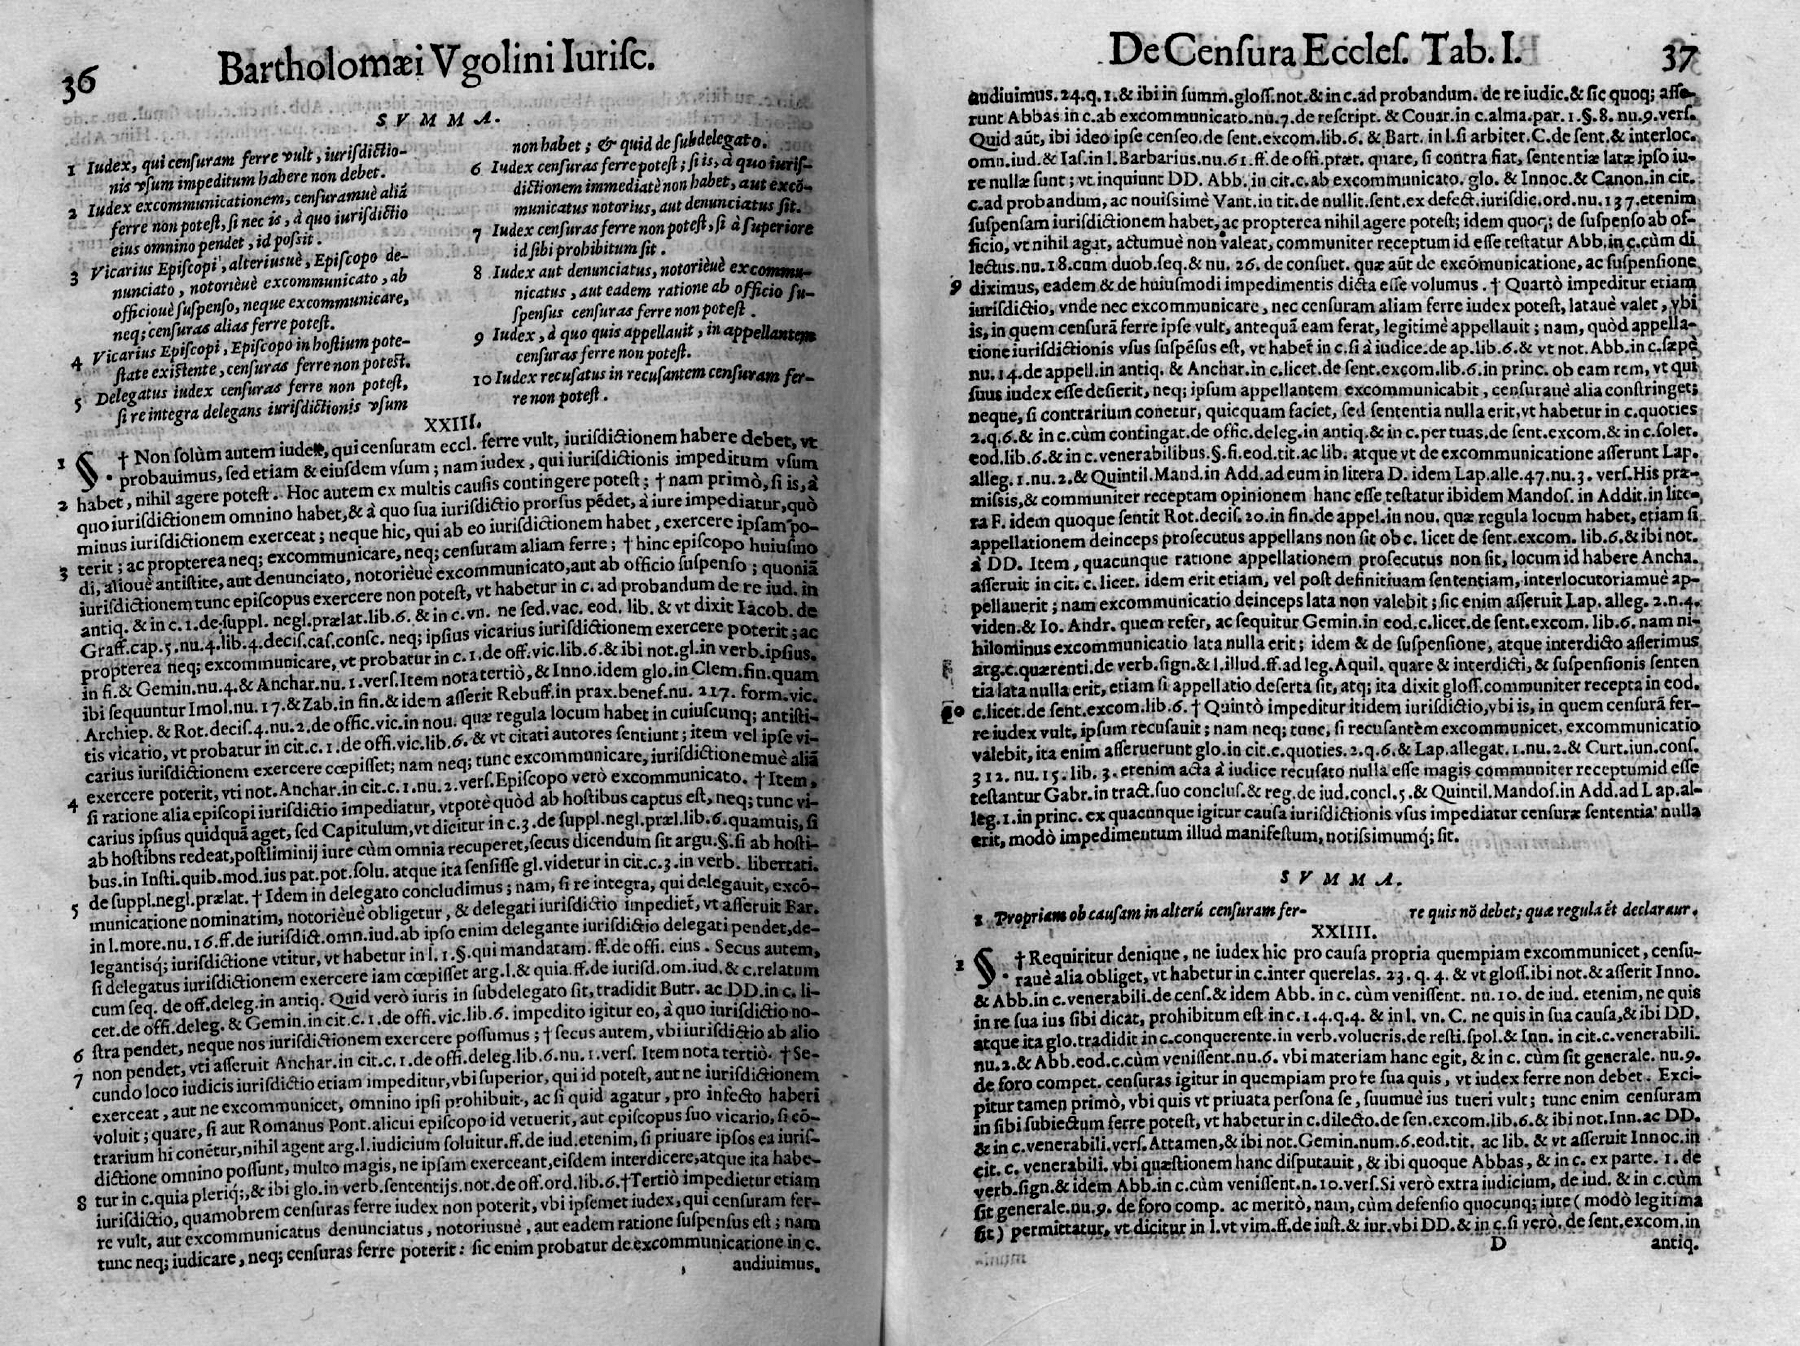 36
Bartholomæi Vgolini Iurisc.
S V M M A.
1 Iudex, qui censuram ferre vult, iurisdictio-
nis vsum impeditum habere non debet.
2 Iudex excommunicationem, censuramuè aliã
ferre non potest, si nec is, à quo iurisdictio
eius omnino pendet, id possit.
3 Vicarius Episcopi, alteriusuè, Episcopo de-
nunciato, notorièuè excommunicato, ab
officiouè suspenso, neque excommunicare,
neq; censuras alias ferre potest.
4 Vicarius Episcopi, Episcopo in hostium pote-
state existente, censuras ferre non potest.
5 Delegatus iudex censuras ferre non potest,
si re integra delegans iurisdictionis vsum
non habet; & quid de subdelegato.
6 Iudex censuras ferre potest; si is, à quo iuris-
dictionem immediatè non habet, aut excõ-
municatus notorius, aut denunciatus sit.
7 Iudex censuras ferre non potest, si à superiore
id sibi prohibitum sit.
8 Iudex aut denunciatus, notorièuè excommu-
nicatus, aut eadem ratione ab officio su-
spensus censuras ferre non potest.
9 Iudex, à quo quis appellauit, in appellantem
censuras ferre non potest.
10 Iudex recusatus in recusantem censuram fer-
re non potest.
XXIII.
1 S. † Non solùm autem iudex, qui censuram eccl. ferre vult, iurisdictionem habere debet, vt
probauimus, sed etiam & eiusdem vsum; nam iudex, qui iurisdictionis impeditum vsum
2 habet, nihil agere potest. Hoc autem ex multis causis contingere potest; † nam primò, si is, à
quo iurisdictionem omnino habet, & à quo sua iurisdictio prorsus pẽdet, à iure impediatur, quò
minus iurisdictionem exerceat; neque hic, qui ab eo iurisdictionem habet, exercere ipsam po-
3 terit; ac propterea neq; excommunicare, neq; censuram aliam ferre; † hinc episcopo huiusmo
di, aliouè antistite, aut denunciato, notorièuè excommunicato, aut ab officio suspenso; quoniã
iurisdictionem tunc episcopus exercere non potest, vt habetur in c. ad probandum de re iud. in
antiq. & in c. 1. de suppl. negl. prælat. lib. 6. & in c. vn. ne sed. vac. eod. lib. & vt dixit Iacob. de
Graff. cap. 5. nu. 4. lib. 4. decis. cas. consc. neq; ipsius vicarius iurisdictionem exercere poterit; ac
propterea neq; excommunicare, vt probatur in c. 1. de off. vic. lib. 6. & ibi not. gl. in verb. ipsius.
in fi. & Gemin. nu. 4. & Anchar. nu. 1. vers. Item nota tertiò, & Inno. idem glo. in Clem. fin. quam
ibi sequuntur Imol. nu. 17. & Zab. in fin. & idem asserit Rebuff. in prax. benef. nu. 217. form. vic.
Archiep. & Rot. decis. 4. nu. 2. de offic. vic. in nou. quæ regula locum habet in cuiuscunq; antisti-
tis vicatio, vt probatur in cit. c. 1. de offi. vic. lib. 6. & vt citati autores sentiunt; item vel ipse vi-
carius iurisdictionem exercere cœpisset; nam neq; tunc excommunicare, iurisdictionemuè aliã
exercere poterit, vti not. Anchar. in cit. c. 1. nu. 2. vers. Episcopo verò excommunicato. † Item,
4 si ratione alia episcopi iurisdictio impediatur, vtpotè quòd ab hostibus captus est, neq; tunc vi-
carius ipsius quidquã aget, sed Capitulum, vt dicitur in c. 3. de suppl. negl. præl. lib. 6. quamuis, si
ab hostibns redeat, postliminij iure cùm omnia recuperet, secus dicendum sit argu. §. si ab hosti-
bus. in Insti. quib. mod. ius pat. pot. solu. atque ita sensisse gl. videtur in cit. c. 3. in verb. libertati.
de suppl. negl. prælat. † Idem in delegato concludimus; nam, si re integra, qui delegauit, excõ-
5 municatione nominatim, notorièuè obligetur, & delegati iurisdictio impediet, vt asseruit Bar.
in l. more. nu. 16. ff. de iurisdict. omn. iud. ab ipso enim delegante iurisdictio delegati pendet, de-
legantisq́; iurisdictione vtitur, vt habetur in l. 1. §. qui mandatam. ff. de offi. eius. Secus autem,
si delegatus iurisdictionem exercere iam cœpisset arg. l. & quia. ff. de iurisd. om. iud. & c. relatum
cum seq. de off. deleg. in antiq. Quid verò iuris in subdelegato sit, tradidit Butr. ac DD. in c. li-
cet. de offi. deleg. & Gemin. in cit. c. 1. de offi. vic. lib. 6. impedito igitur eo, à quo iurisdictio no-
stra pendet, neque nos iurisdictionem exercere possumus; † secus autem, vbi iurisdictio ab alio
6 non pendet, vti asseruit Anchar. in cit. c. 1. de offi. deleg. lib. 6. nu. 1. vers. Item nota tertiò. † Se-
7 cundo loco iudicis iurisdictio etiam impeditur, vbi superior, qui id potest, aut ne iurisdictionem
exerceat, aut ne excommunicet, omnino ipsi prohibuit, ac si quid agatur, pro infecto haberi
voluit; quare, si aut Romanus Pont. alicui episcopo id vetuerit, aut episcopus suo vicario, si cõ-
trarium hi conẽtur, nihil agent arg. l. iudicium soluitur. ff. de iud. etenim, si priuare ipsos ea iuris-
dictione omnino possunt, multo magis, ne ipsam exerceant, eisdem interdicere, atque ita habe-
tur in c. quia pleriq;, & ibi glo. in verb. sententijs. not. de off. ord. lib. 6. † Tertiò impedietur etiam
8 iurisdictio, quamobrem censuras ferre iudex non poterit, vbi ipsemet iudex, qui censuram fer-
re vult, aut excommunicatus denunciatus, notoriusuè, aut eadem ratione suspensus est; nam
tunc neq; iudicare, neq; censuras ferre poterit: sic enim probatur de excommunicatione in c.
audiuimus.
De Censura Eccles. Tab. I.
37
audiuimus. 24. q. 1. & ibi in summ. gloss. not. & in c. ad probandum. de re iudic. & sic quoq; asse-
runt Abbas in c. ab excommunicato. nu. 7. de rescript. & Couar. in c. alma. par. 1. §. 8. nu. 9. vers.
Quid aũt, ibi ideo ipse censeo. de sent. excom. lib. 6. & Bart. in l. si arbiter. C. de sent. & interloc.
omn. iud. & Ias. in l. Barbarius. nu. 61. ff. de offi. præt. quare, si contra fiat, sententiæ latæ ipso iu-
re nullæ sunt; vt inquiunt DD. Abb. in cit. c. ab excommunicato. glo. & Innoc. & Canon. in cit.
c. ad probandum, ac nouissimè Vant. in tit. de nullit. sent. ex defect. iurisdic. ord. nu. 137. etenim
suspensam iurisdictionem habet, ac propterea nihil agere potest; idem quoq; de suspenso ab of-
ficio, vt nihil agat, actumuè non valeat, communiter receptum id esse testatur Abb. in c. cùm di
lectus. nu. 18. cum duob. seq. & nu. 26. de consuet. quæ aũt de excõmunicatione, ac suspensione
9 diximus, eadem & de huiusmodi impedimentis dicta esse volumus. † Quartò impeditur etiam
iurisdictio, vnde nec excommunicare, nec censuram aliam ferre iudex potest, latauè valet, vbi
is, in quem censurã ferre ipse vult, antequã eam ferat, legitimè appellauit; nam, quòd appella-
tione iurisdictionis vsus suspẽsus est, vt habet in c. si à iudice. de ap. lib. 6. & vt not. Abb. in c. sæpe
nu. 14. de appell. in antiq. & Anchar. in c. licet. de sent. excom. lib. 6. in princ. ob eam rem, vt qui
suus iudex esse desierit, neq; ipsum appellantem excommunicabit, censurauè alia constringet;
neque, si contrarium conetur, quicquam faciet, sed sententia nulla erit, vt habetur in c. quoties
2. q. 6. & in c. cùm contingat. de offic. deleg. in antiq. & in c. per tuas. de sent. excom. & in c. solet.
eod. lib. 6. & in c. venerabilibus. §. fi. eod. tit. ac lib. atque vt de excommunicatione asserunt Lap.
alleg. 1. nu. 2. & Quintil. Mand. in Add. ad eum in litera D. idem Lap. alle. 47. nu. 3. vers. His præ-
missis, & communiter receptam opinionem hanc esse testatur ibidem Mandos. in Addit. in lite-
ra F. idem quoque sentit Rot. decis. 20. in fin. de appel. in nou. quæ regula locum habet, etiam si
appellationem deinceps prosecutus appellans non sit ob c. licet de sent. excom. lib. 6. & ibi not.
à DD. Item, quacunque ratione appellationem prosecutus non sit, locum id habere Ancha.
asseruit in cit. c. licet. idem erit etiam, vel post definitiuam sententiam, interlocutoriamuè ap-
pellauerit; nam excommunicatio deinceps lata non valebit; sic enim asseruit Lap. alleg. 2. n. 4.
viden. & Io. Andr. quem refer, ac sequitur Gemin. in eod. c. licet. de sent. excom. lib. 6. nam ni-
hilominus excommunicatio lata nulla erit; idem & de suspensione, atque interdicto asserimus
arg. c. quærenti. de verb. sign. & l. illud. ff. ad leg. Aquil. quare & interdicti, & suspensionis senten
tia lata nulla erit, etiam si appellatio deserta sit, atq; ita dixit gloss. communiter recepta in eod.
10 c. licet. de sent. excom. lib. 6. † Quintò impeditur itidem iurisdictio, vbi is, in quem censurã fer-
re iudex vult, ipsum recusauit; nam neq; tunc, si recusantèm excommunicet, excommunicatio
valebit, ita enim asseruerunt glo. in cit. c. quoties. 2. q. 6. & Lap. allegat. 1. nu. 2. & Curt. iun. cons.
312. nu. 15. lib. 3. etenim acta à iudice recusato nulla esse magis communiter receptum id esse
testantur Gabr. in tract. suo conclus. & reg. de iud. concl. 5. & Quintil. Mandos. in Add. ad Lap. al-
leg. 1. in princ. ex quacunque igitur causa iurisdictionis vsus impediatur censuræ sententia nulla
erit, modò impedimentum illud manifestum, notissimumq́; sit.
S V M M A.
1 Propriam ob causam in alterũ censuram fer-
re quis nõ debet; quæ regula ẽt declaraur.
XXIIII.
1 S. † Requiritur denique, ne iudex hic pro causa propria quempiam excommunicet, censu-
rauè alia obliget, vt habetur in c. inter querelas. 23. q. 4. & vt gloss. ibi not. & asserit Inno.
& Abb. in c. venerabili. de cens. & idem Abb. in c. cùm venissent. nu. 10. de iud. etenim, ne quis
in re sua ius sibi dicat, prohibitum est in c. 1. 4. q. 4. & in l. vn. C. ne quis in sua causa, & ibi DD.
atque ita glo. tradidit in c. conquerente. in verb. volueris. de resti. spol. & Inn. in cit. c. venerabili.
nu. 2. & Abb. eod. c. cùm venissent. nu. 6. vbi materiam hanc egit, & in c. cùm sit generale. nu. 9.
de foro compet. censuras igitur in quempiam pro re sua quis, vt iudex ferre non debet. Exci-
pitur tamen primò, vbi quis vt priuata persona se, suumuè ius tueri vult; tunc enim censuram
in sibi subiectum ferre potest, vt habetur in c. dilecto. de sen. excom. lib. 6. & ibi not. Inn. ac DD.
& in c. venerabili. vers. Attamen, & ibi not. Gemin. num. 6. eod. tit. ac lib. & vt asseruit Innoc. in
cit. c. venerabili. vbi quæstionem hanc disputauit, & ibi quoque Abbas, & in c. ex parte. 1. de
verb. sign. & idem Abb. in c. cùm venissent. n. 10. vers. Si verò extra iudicium, de iud. & in c. cùm
sit generale. nu. 9. de foro comp. ac meritò, nam, cùm defensio quocunq; iure (modò legitima
sit) permittatur, vt dicitur in l. vt vim. ff. de iust. & iur. vbi DD. & in c. si verò. de sent. excom. in
D
antiq.